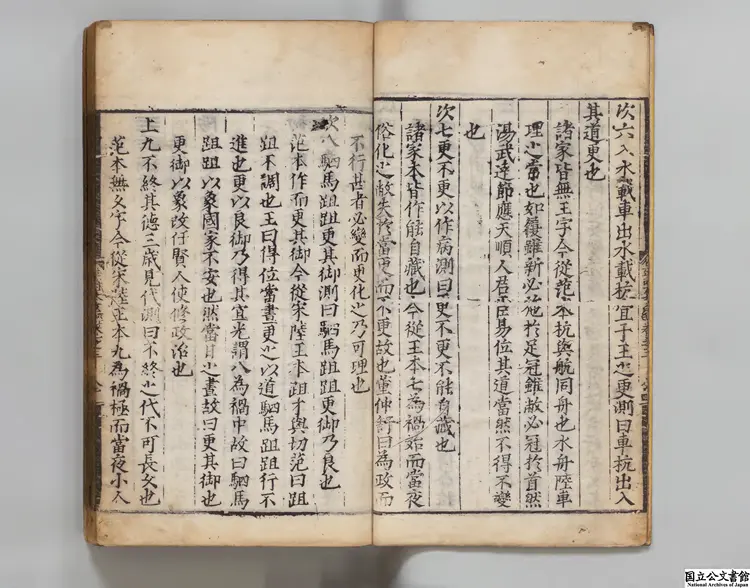 次六入水載車出水載杭宜于王之更測曰車杭出入
其道更也
諸家皆無王字今從范本抗與航同舟也水舟陸車
理之常也如履雖新必施於足冠雖敝必冠於首然
湯武達節應天順人君臣易位其道當然不得不變
也
次七更不更以作病測曰更不更不能自臧也
諸家本皆作能自臧也今從王本七為禍始而當夜
俗化之敝失於當更而不更故也董仲舒曰為政而
不行甚者必變而更化之乃可理也
次八駟馬跙跙更其御測曰駟馬跙跙更御乃良也
范本作而更其御今從宋陸王本跙才與切范曰跙
跙不調也王曰得位當晝更之以道駟馬跙跙行不
進也更以良御乃得其宜光謂八為禍中故曰駟馬
跙跙以象國家不安也然當日之晝故曰更其御也
更御以象改任賢人使修政治也
上九不終其德三歲見代測曰不終之代不可長久也
范本無久字今從宋陸王本九為禍極而當夜小人
国立公文書館
National Archives of Japan